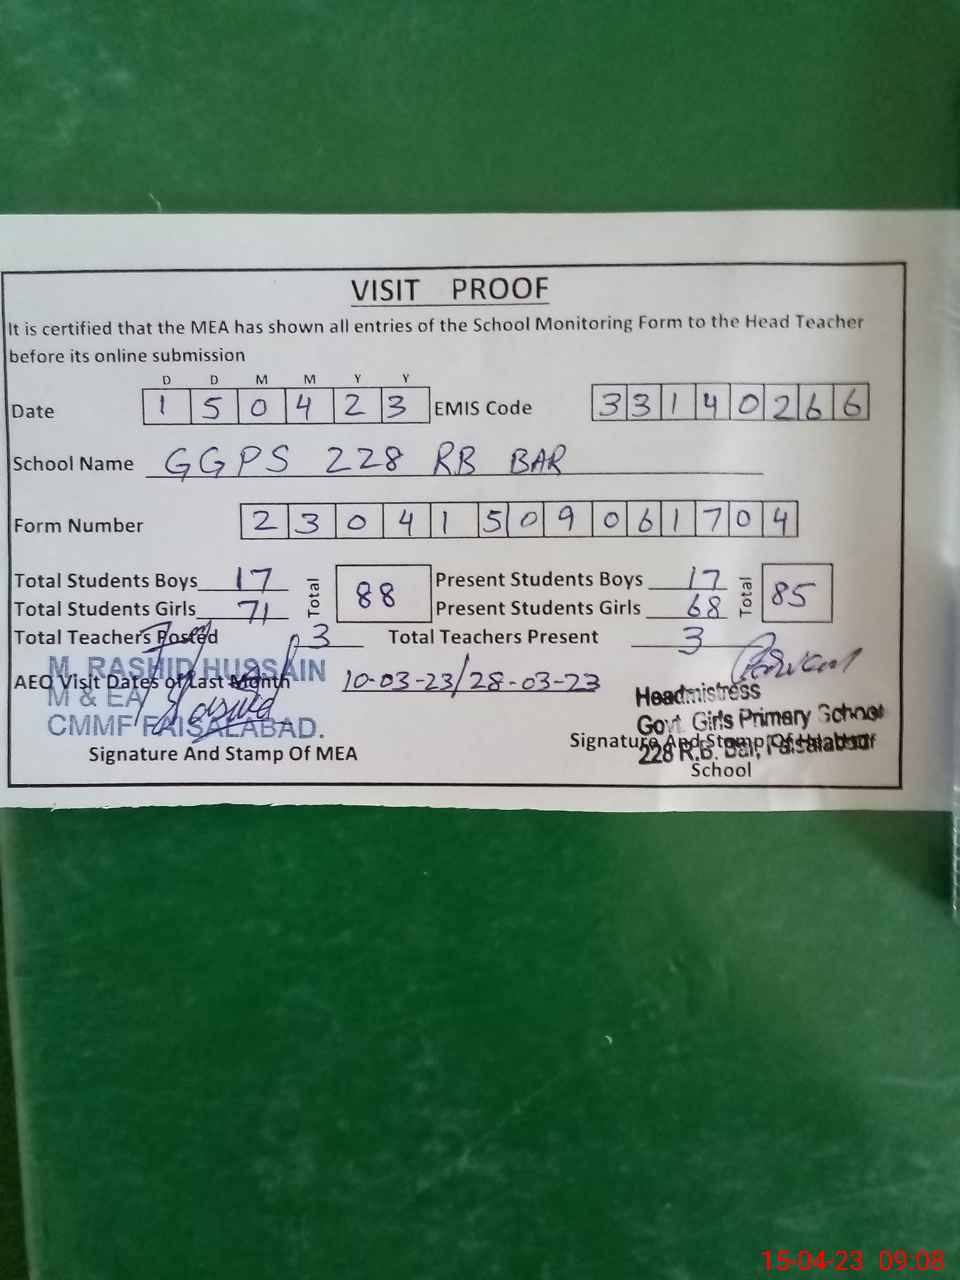 VISIT PROOF
It is certified that the MEA has shown all entries of the School Monitoring Form to the Head Teacher
before its online submission
D D M M Y Y
Date 1 5 0 4 2 3 EMIS Code 3 3 1 4 0 2 6 6
School Name GGPS 228 RB BAR
Form Number 2 3 0 4 1 5 0 9 0 6 1 7 0 4
Total Students Boys 17 Total 88 Present Students Boys 17 Total 85
Total Students Girls 71 Present Students Girls 68
Total Teachers Posted 3 Total Teachers Present 3
M. RASHID HUSSAIN
AEO Visit Dates of Last Month 10-03-23/28-03-23
M & EA
CMMF FAISALABAD.
Headmistress
Govt Girls Primary School
228 R.B. Bar, Faisalabad
Signature And Stamp Of MEA
Signature And Stamp Of
School
15-04-23 09:08